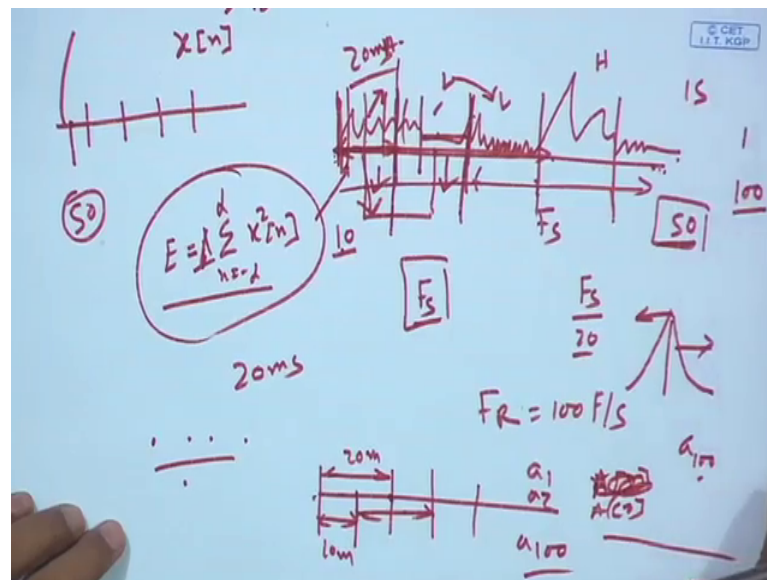 x[n]
© CET
I.I.T. KGP
20ms
H
1S
1
100
50
E = 1 Σ x²[n]
α
n=-α
10
Fs
50
Fs
Fs
20
20ms
FR = 100 F/S
a100
20m
10m
a1
a2
A[n]
a100